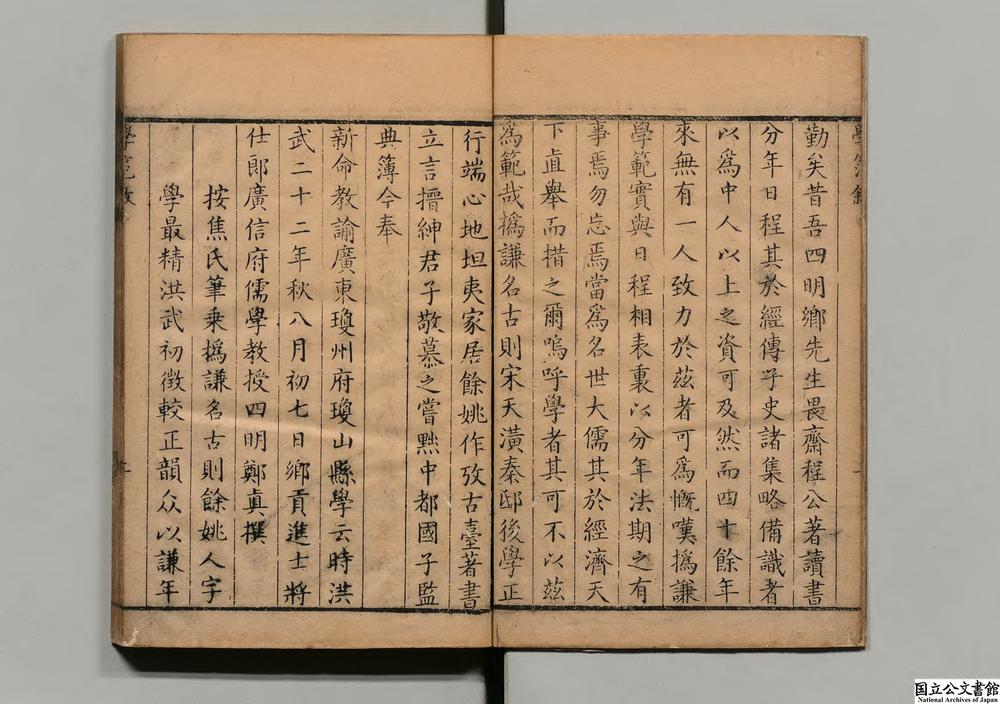 勤矣昔吾四明鄉先生畏齋程公著讀書
分年日程其於經傳子史諸集略備識者
以爲中人以上之資可及然而四十餘年
來無有一人致力於茲者可爲慨嘆撝謙
學範實與日程相表裏以分年法期之有
事焉勿忘焉當爲名世大儒其於經濟天
下直舉而措之爾嗚呼學者其可不以茲
爲範哉撝謙名古則宋天潢秦邸後學正
行端心地坦夷家居餘姚作攷古臺著書
立言搢紳君子敬慕之嘗㸃中都國子監
典簿今奉
新命教諭廣東瓊州府瓊山縣學云時洪
武二十二年秋八月初七日鄉貢進士將
仕郎廣信府儒學教授四明鄭真撰
按焦氏筆乗撝謙名古則餘姚人字
學最精洪武初徴較正韻众以謙年
国立公文書館
National Archives of Japan